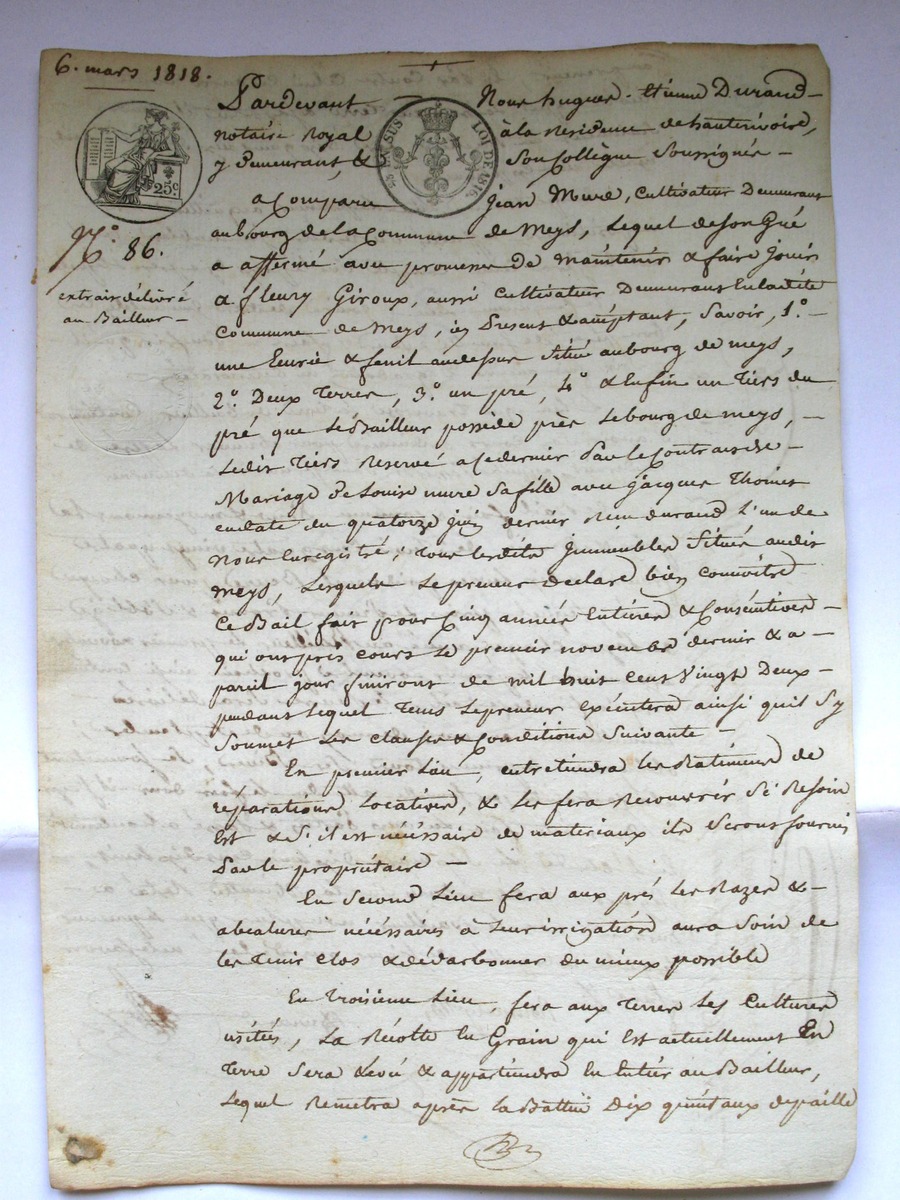 6. mars 1818.
Pardevant Nous hugues-Etienne Durand
notaire Royal à la Residence de hauterivoire,
y Demeurant, & Son Collègue Soussignés
EN SUS LOI DE 1816
25c
N.° 86.
extrait délivré
au Bailleur
a Comparu Jean Mure, Cultivateur Demeurant
au bourg de la Commune de Meys, Lequel de son Gré
a affermé avec promesse de maintenir & faire Jouir
a fleury Giroux, aussi Cultivateur Demeurant Enladite
Commune de Meys, icy Present & acceptant, Savoir, 1.°
une Ecurie & fenil audessus Situés au bourg de meys,
2.° Deux Terres, 3.° un pré, 4.° & Enfin un Tiers du
pré que Le Bailleur possède près Le bourg de meys,
Ledit Tiers Reservé a Ce dernier Par le Contrat de
Mariage de Louise mure Sa fille avec Jacques Thoinet
en date du quatorze Juin dernier Reçu durand L'un de
Nous Enregistré; Tous Lesdits Jmmeubles Situés audit
Meys, Lesquels Le preneur declare bien Connoitre
Ce Bail fait pour Cinq années Entieres & Consécutives
qui ont pris Cours Le premier novembre dernier & a
pareil jour finiront de mil huit Cent Vingt Deux
pendant Lequel Tems Le preneur Exécutera ainsi quil S'y
Soumet Les Clauses & Conditions Suivantes
En premier Lieu, entretiendra Les Batimens de
réparations Locatives, & Les fera Recouvrir Si Besoin
Est & S'il est nécessaire de materiaux ils Seront fournis
Par le propriétaire
En Second Lieu fera aux prés Les Razes &
abecatures nécéssaires à Leur irrigation aura Soin de
les Tenir Clos & dédarbonner du mieux possible
En Troisieme Lieu, fera aux Terres Les Cultures
usitées, La Récolte En Grain qui Est actuellement En
Terre Sera Levée & appartiendra En Entier au Bailleur,
Lequel Remetra après La Battue Dix quintaux de paille